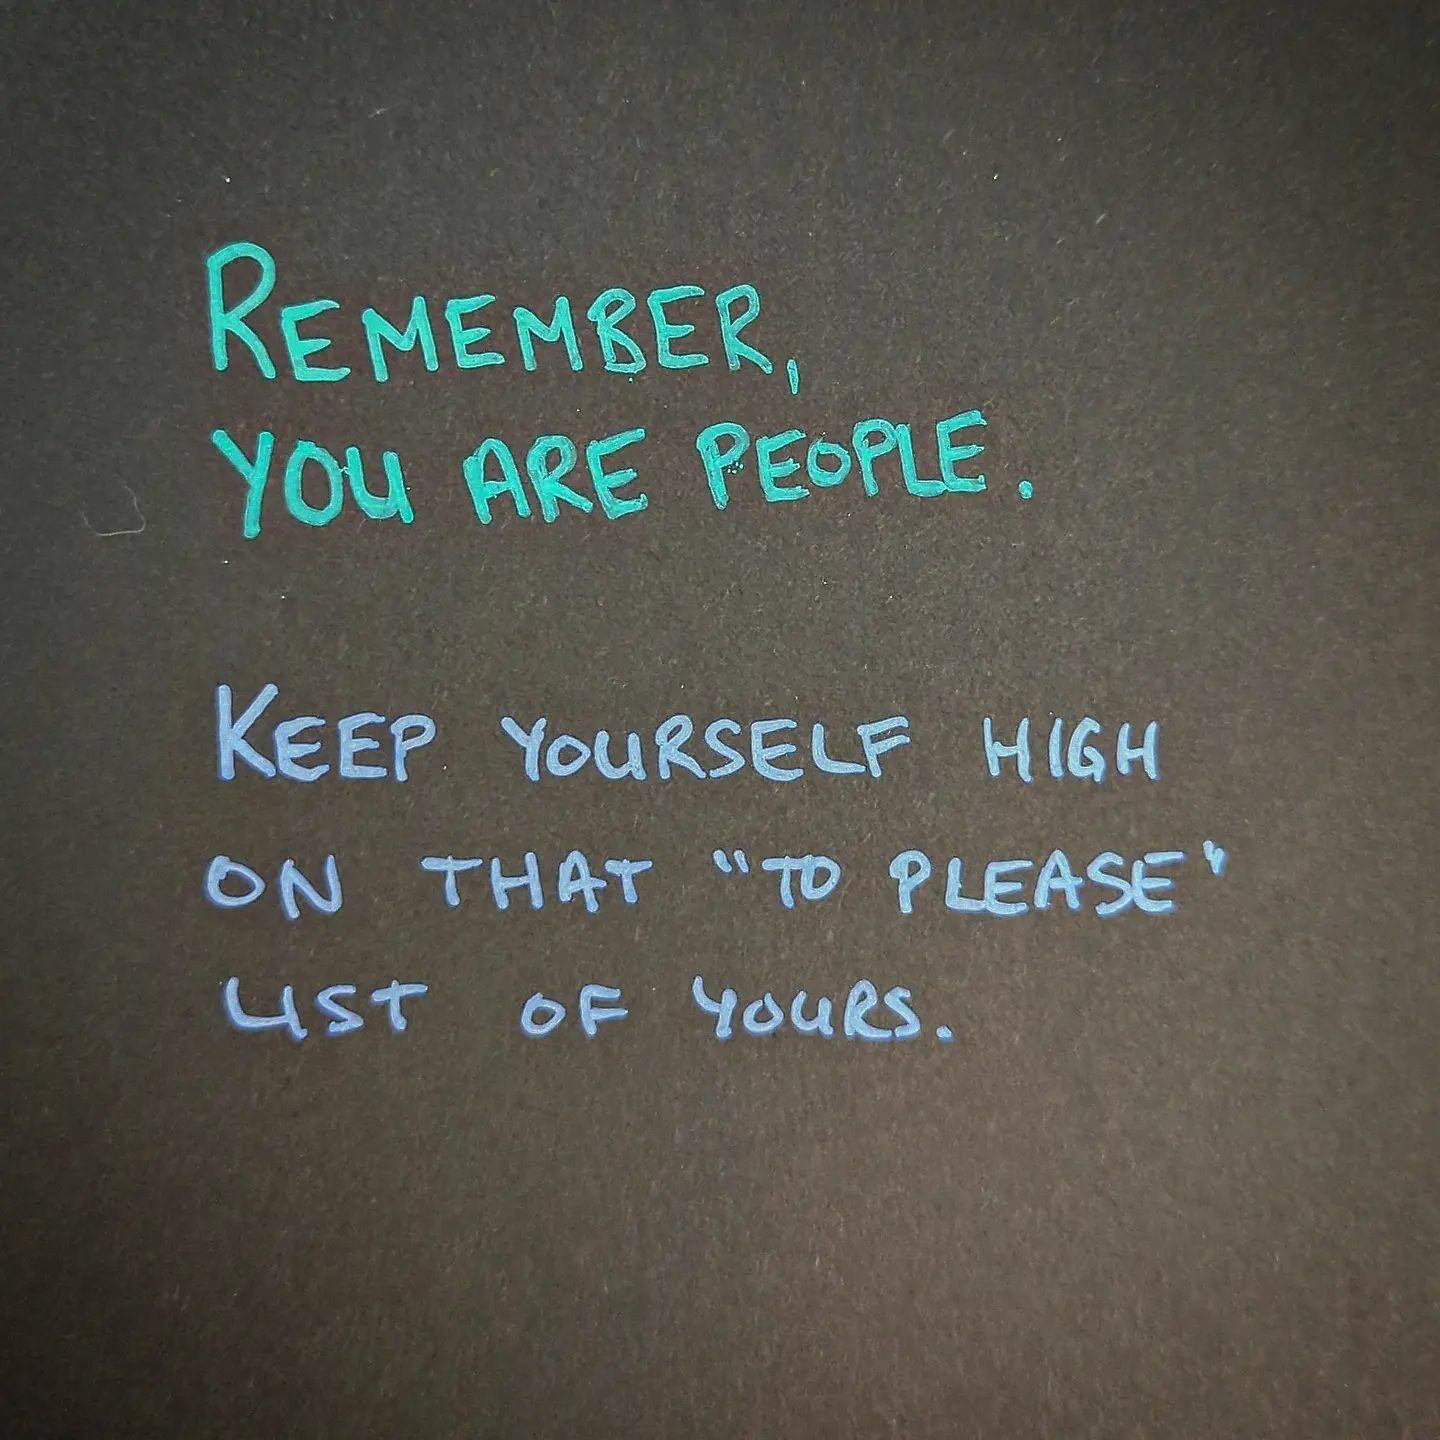 REMEMBER,
YOU ARE PEOPLE.
KEEP YOURSELF HIGH
ON THAT "TO PLEASE"
LIST OF YOURS.